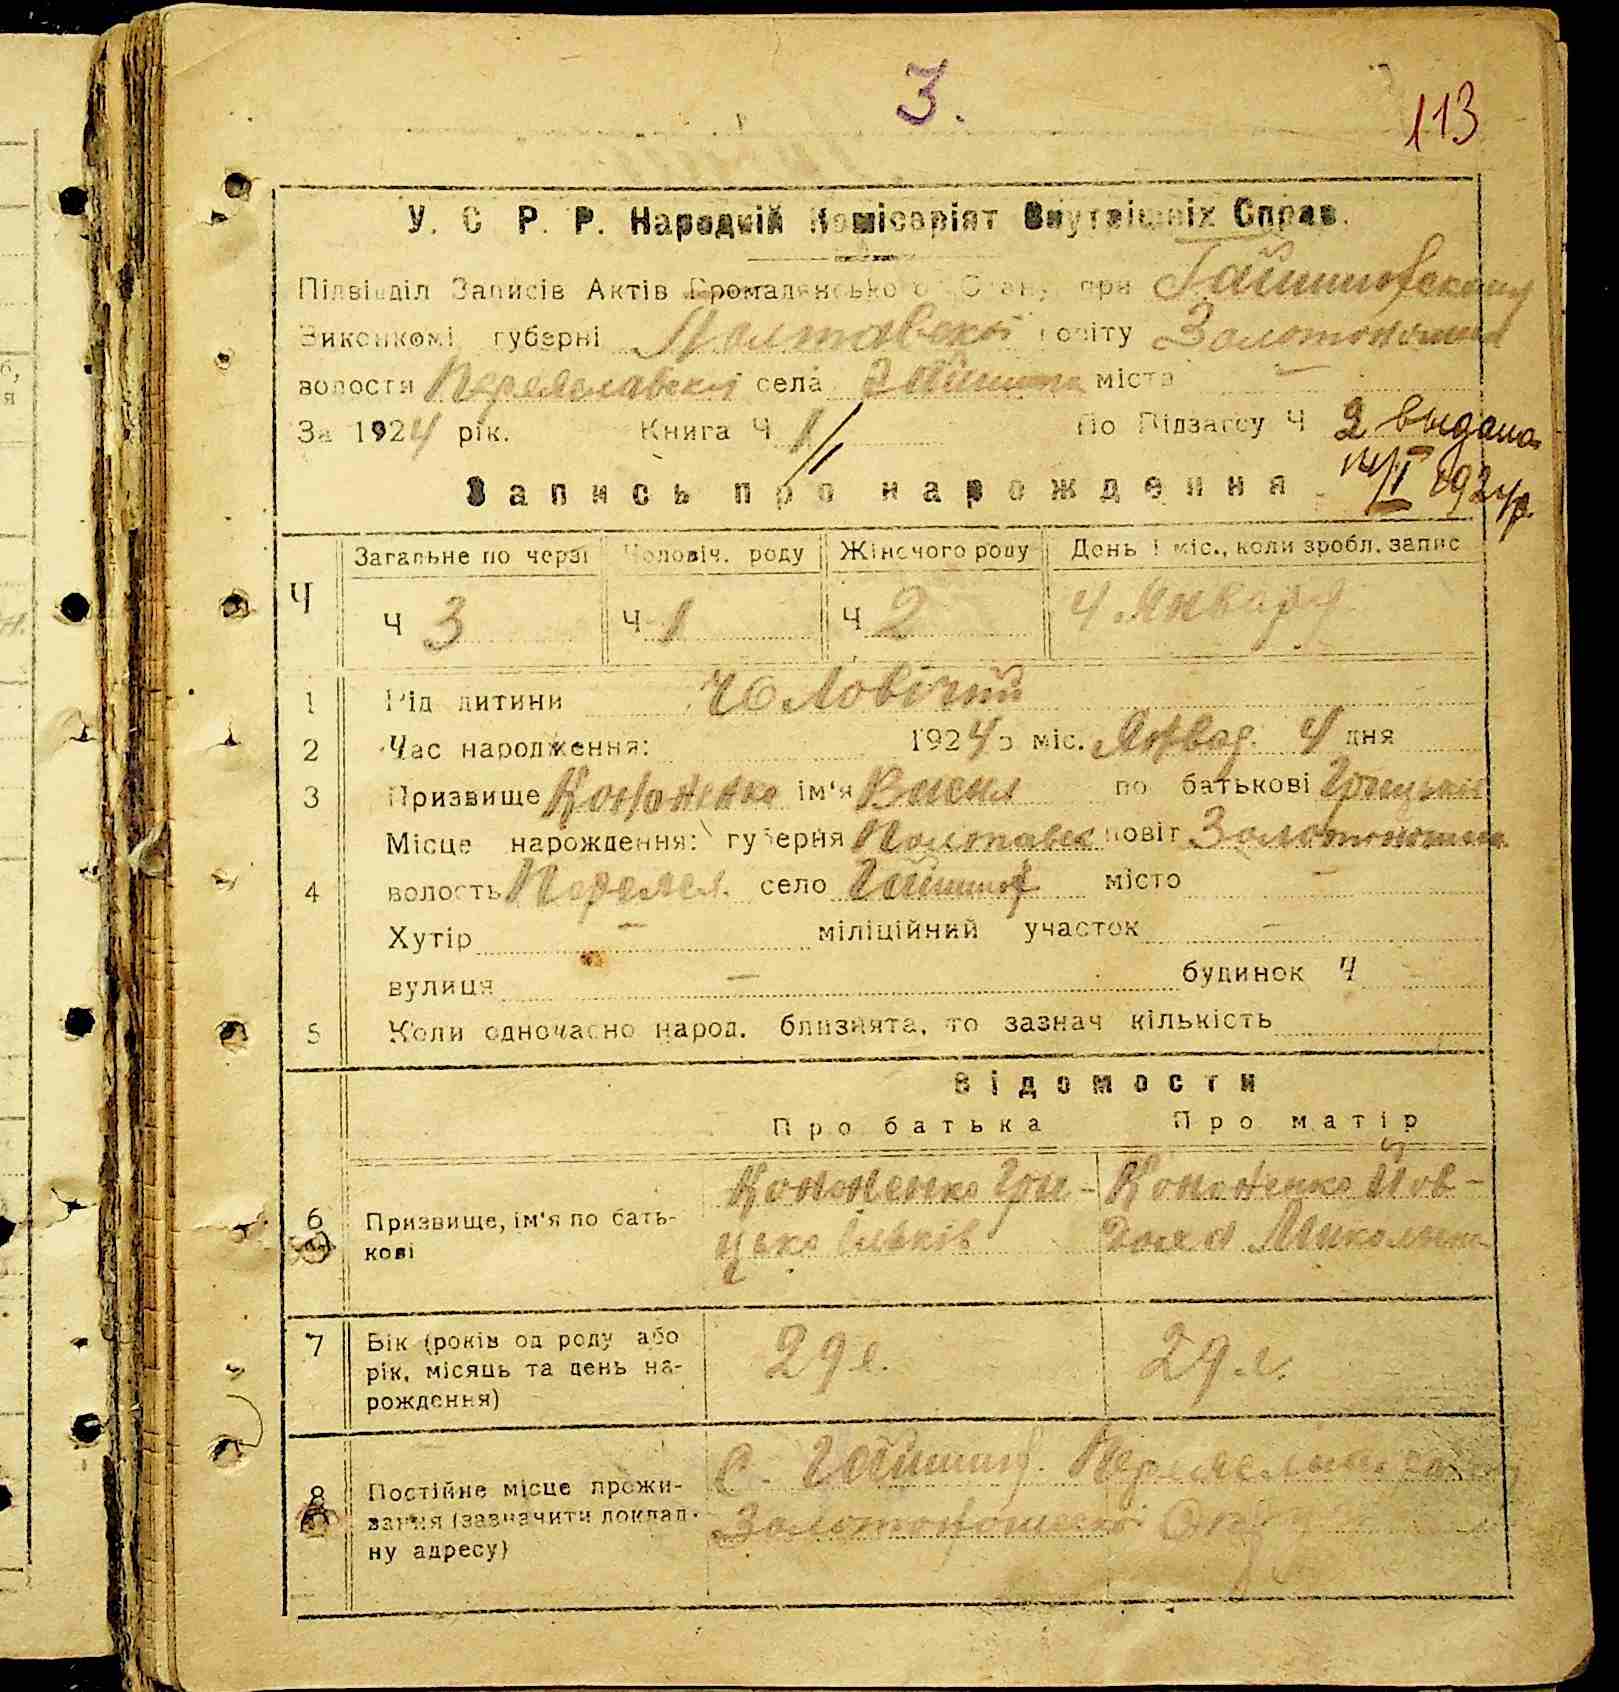 3.
113
У. С. Р. Р. Народній Комісаріят Внутрішніх Справ.
Підвідділ Записів Актів Громадянського Стану при Гайшиновскому
Виконкомі губерні Полтавскої повіту Золотоноша
волости Переяславскої села міста —
За 1924 рік. Книга Ч 1/1 По Підзагсу Ч 2 выдана
14/I 1924р
Запись про нарождення
Загальне по черзі Чоловіч. роду Жіночого роду День і міс., коли зробл. запис
Ч Ч 3 Ч 1 Ч 2 4 Января
1 Рід дитини Чоловічий
2 Час народження: 1924 р міс. Январ. 4 дня
3 Призвище Кононенко ім'я Васил по батькові Грицьків
Місце нарождення: губерня Полтавс повіт Золотоноша
4 волость Переясл. село Гайшин місто —
Хутір — міліційний участок —
вулиця — будинок Ч
5 Коли одночасно народ. близнята, то зазнач кількість
Відомости
Про батька Про матір
Кононенко Гри- Кононенко Йов-
6 Призвище, ім'я по бать- цько Ільків Миколаєв
кові
7 Вік (років од роду або 29 л. 29 л.
рік, місяць та день на-
рождення)
С. Гайшин.
8 Постійне місце прожи-
вання (зазначити доклад- Золотоношской Округ
ну адресу)